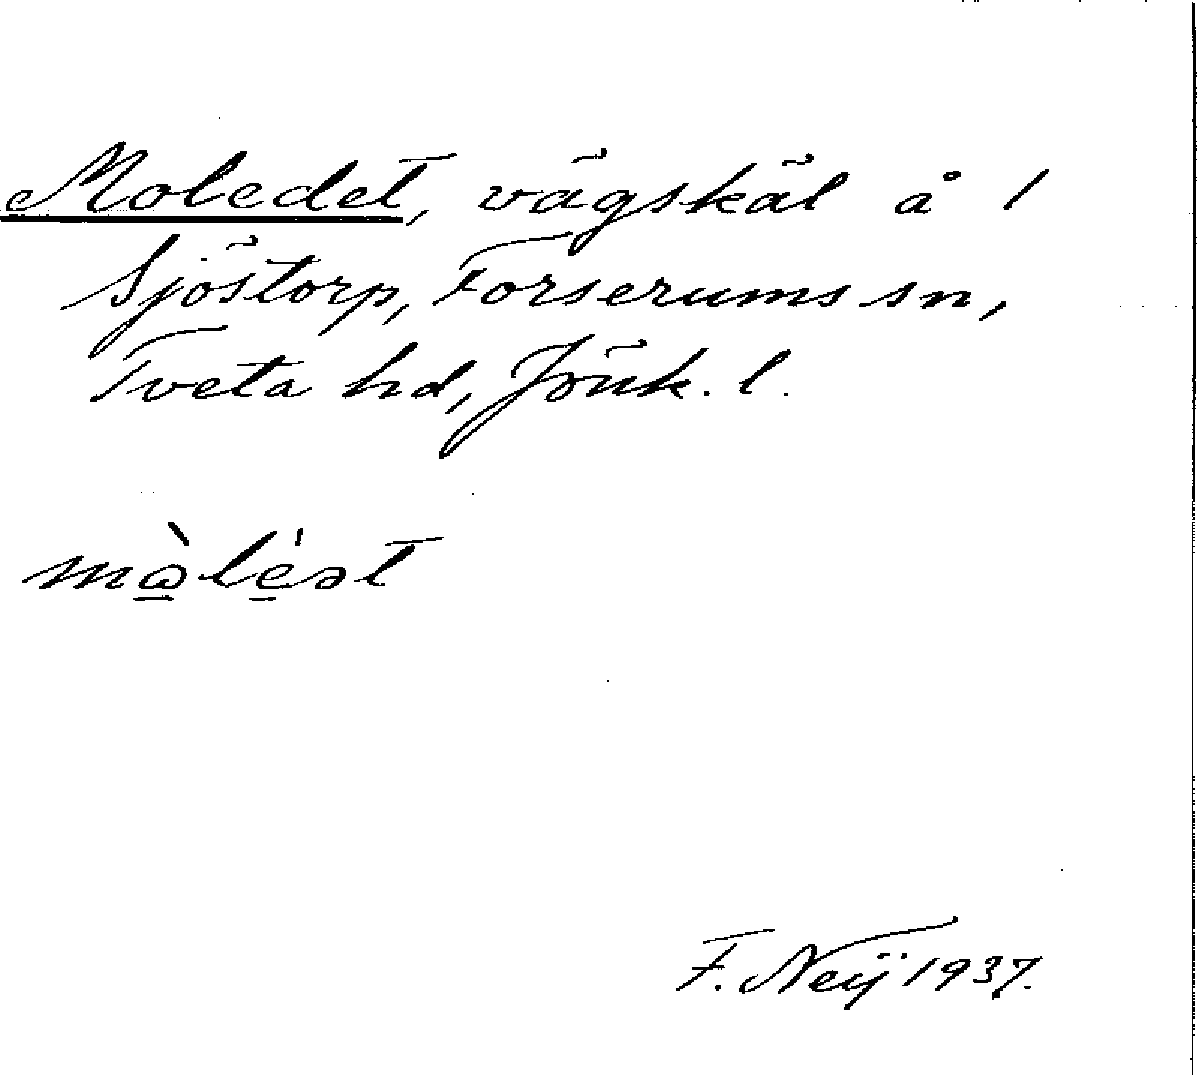 Moledet, vägskäl å 1
Sjöstorp, Forserums sn,
Tveta hd, Jönk. l.
mὼ̲le̲̍ət
F. Neij 1937.